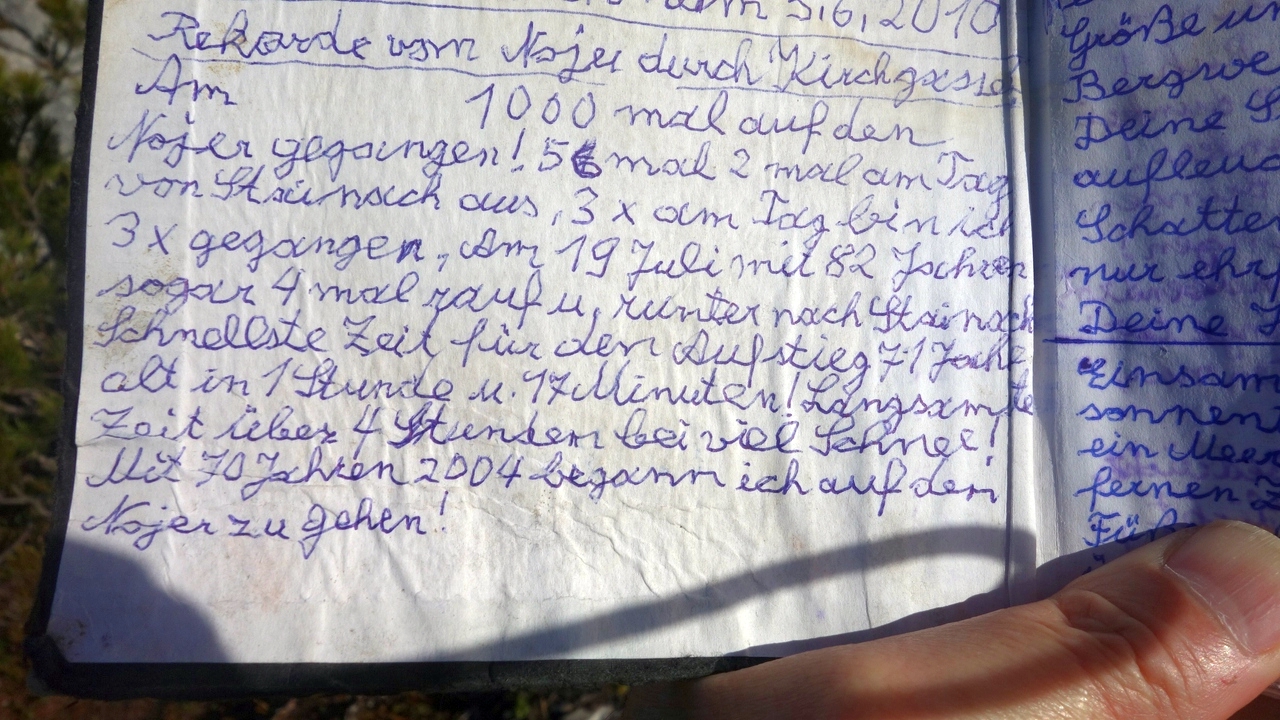 am 5.6.2010
Rekorde vom Nojer durch Kirchgasso
Am 1000 mal auf den
Nojer gegangen! 56 mal 2 mal am Tag
von Stainach aus, 3 x am Tag bin ich
3 x gegangen, Am 19 Juli mit 82 Jahren
sogar 4 mal rauf u. runter nach Stainach
Schnellste Zeit für den Aufstieg 71 Jahre
alt in 1 Stunde u. 47 Minuten! Langsamste
Zeit über 4 Stunden bei viel Schnee!
Mit 70 Jahren 2004 begann ich auf den
Nojer zu gehen!
Größe un
Bergwe
Deine S
aufleuc
Schatte
nur ehrf
Deine
Einsam
sonnen
ein Meer
fernen
Füß